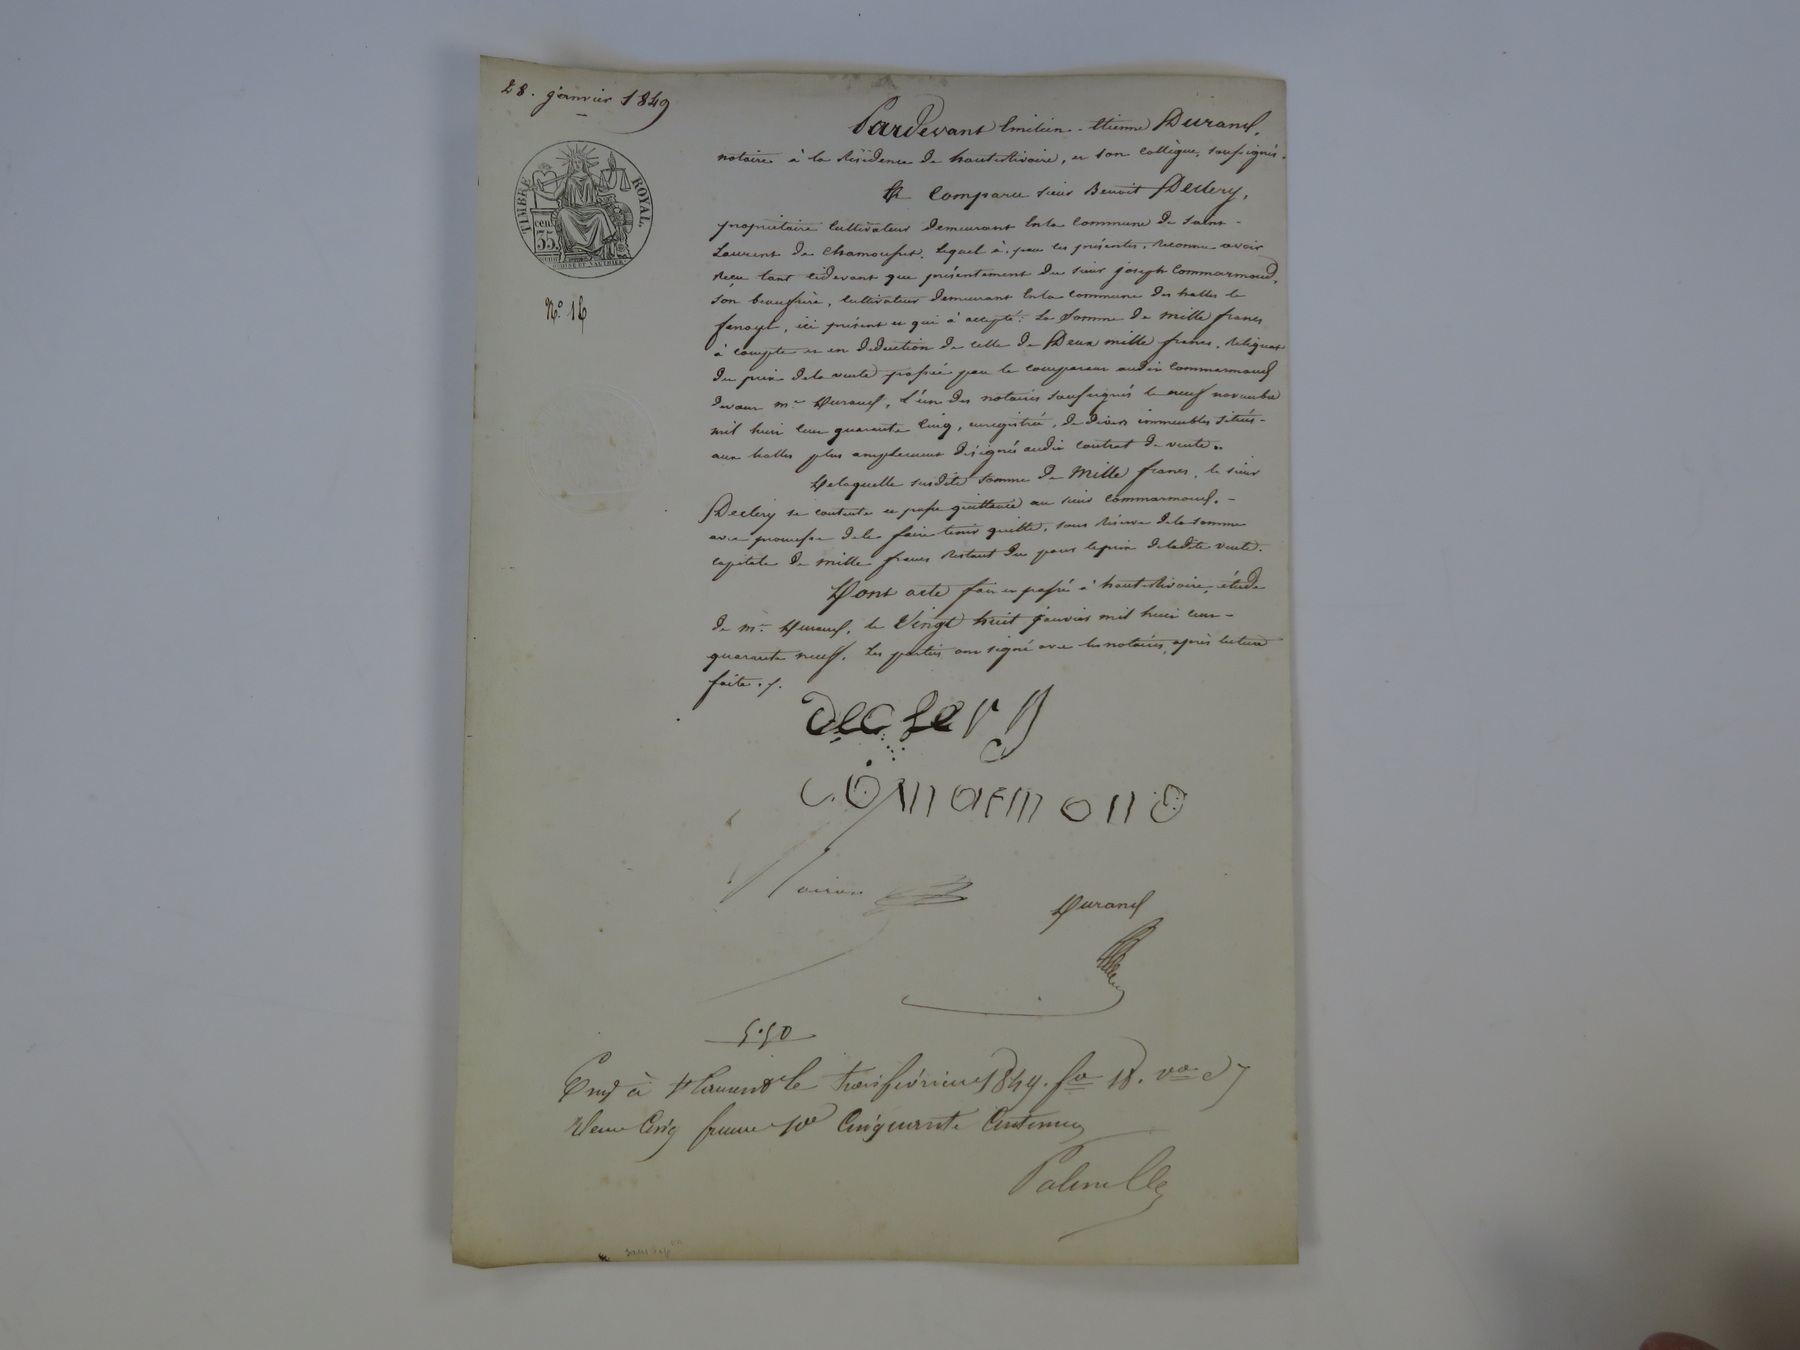 28. janvier 1849
TIMBRE ROYAL
cen.
35
N.º 14
Pardevant Emilien-Etienne Durand,
notaire à la Résidence de hauterivoire, et son collègue, soussignés.
A Comparu sieur Benoit Decléry,
propriétaire cultivateur demeurant enla Commune de saint-
Laurent de Chamousset. Lequel à, par les présentes, Reconnu avoir
Reçu tant cidevant que présentement du sieur joseph Commarmond,
son beaufrère, cultivateur demeurant enla commune des halles le
fenoyl, ici présent et qui à accepté: La Somme de Mille francs
à compte et en déduction de celle de Deux mille francs, Reliquat
du prix dela vente passée par le comparant audit Commarmond
devant m.e Durand, l'un des notaires soussignés le neuf novembre
mil huit cent quarante cinq, enregistrée, de divers immeubles situés-
aux halles plus amplement désignés audit contrat de vente..
Delaquelle susdite somme de Mille francs, le sieur
Decléry se contente et passe quittance au sieur Commarmond. -
avec promesse dele faire tenir quitte, sous Réserve dela somme
capitale de mille francs Restant due pour leprix deladite vente.
Dont acte fait et passé à hauterivoire, étude
de m.e Durand, le Vingt huit janvier mil huit cent-
quarante neuf. Les parties ont signé avec les notaires, après lecture
faite./.
Declery
Comarmond
Durand
5.50
Enr.é à St Laurent le trois février 1849. f.o 18. v.o c 7
Reçu Cinq francs 10.e Cinquante Centimes